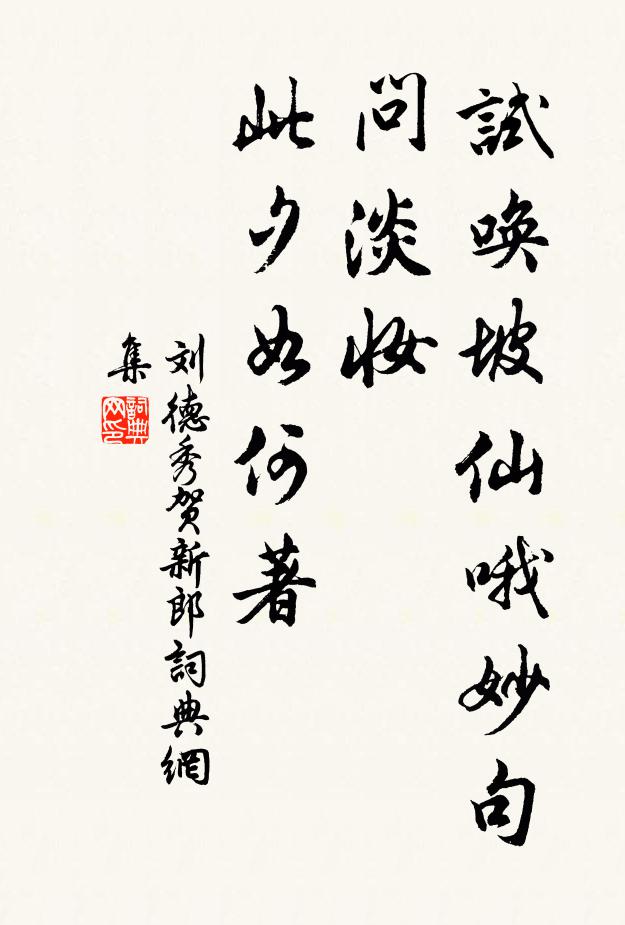 試喚坡仙哦妙句
問淡妝
此夕如何著
刘德秀贺新郎詞典網
集
詞典
网印